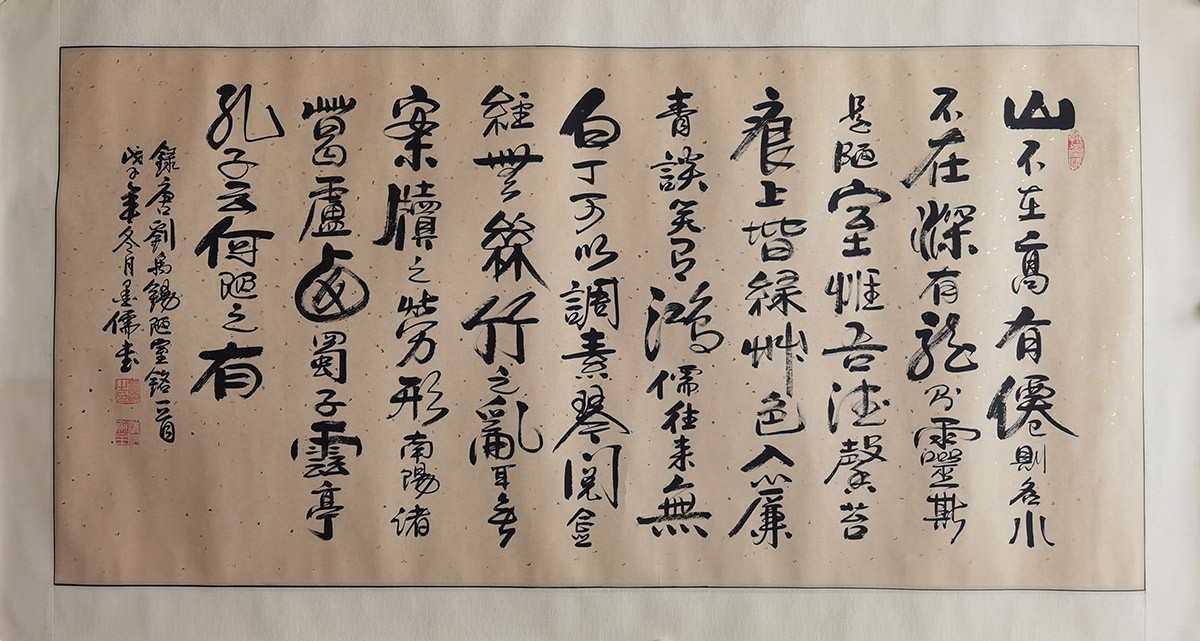 山不在高有僊則名水
不在深有龍則靈斯
是陋室惟吾德馨苔
痕上堦綠艸色入簾
青談笑有鴻儒往来無
白丁可以調素琴閱金
經無絲竹之亂耳無
案牘之勞形南陽諸
葛廬西蜀子雲亭
孔子云何陋之有
錄唐劉禹錫陋室銘一首
戊子年冬月墨儒书